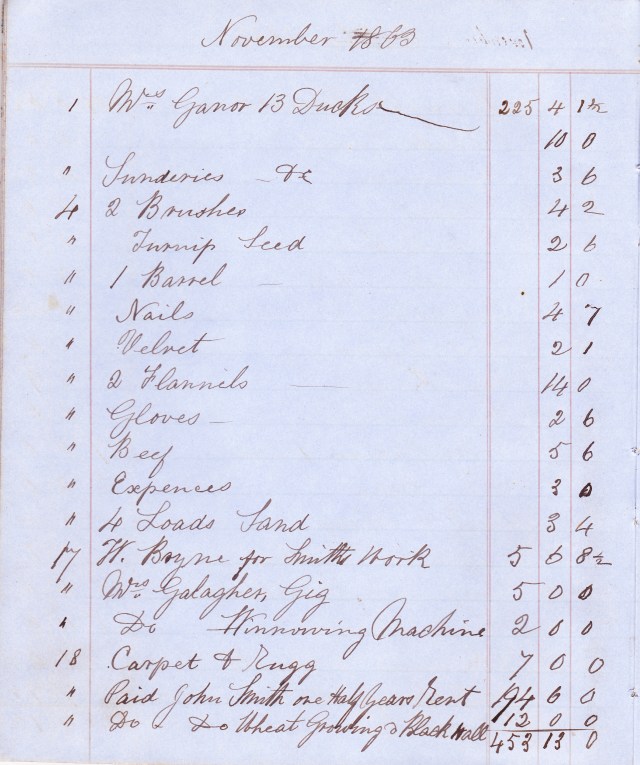 November 1863
1 Mrs Ganor 13 Ducks 225 4 1½
10 0
" Sunderies - &c 3 6
4 2 Brushes 4 2
" Turnip Seed 2 6
" 1 Barrel - 1 0
" Nails 4 7
" Velvet 2 1
" 2 Flannils — 14 0
" Gloves - 2 6
" Beef 5 6
" Expences 3 0
" 4 Loads Sand 3 4
17 W. Bryne for Smiths Work 5 6 8½
" Mrs. Galagher, Gig 5 0 0
" Do Winnowing Machine 2 0 0
18 Carpet & Rugg 7 0 0
" Paid John Smith one Half Years Rent 194 6 0
" Do & Do Wheat Growing & Black Wall 12 0 0
453 13 0